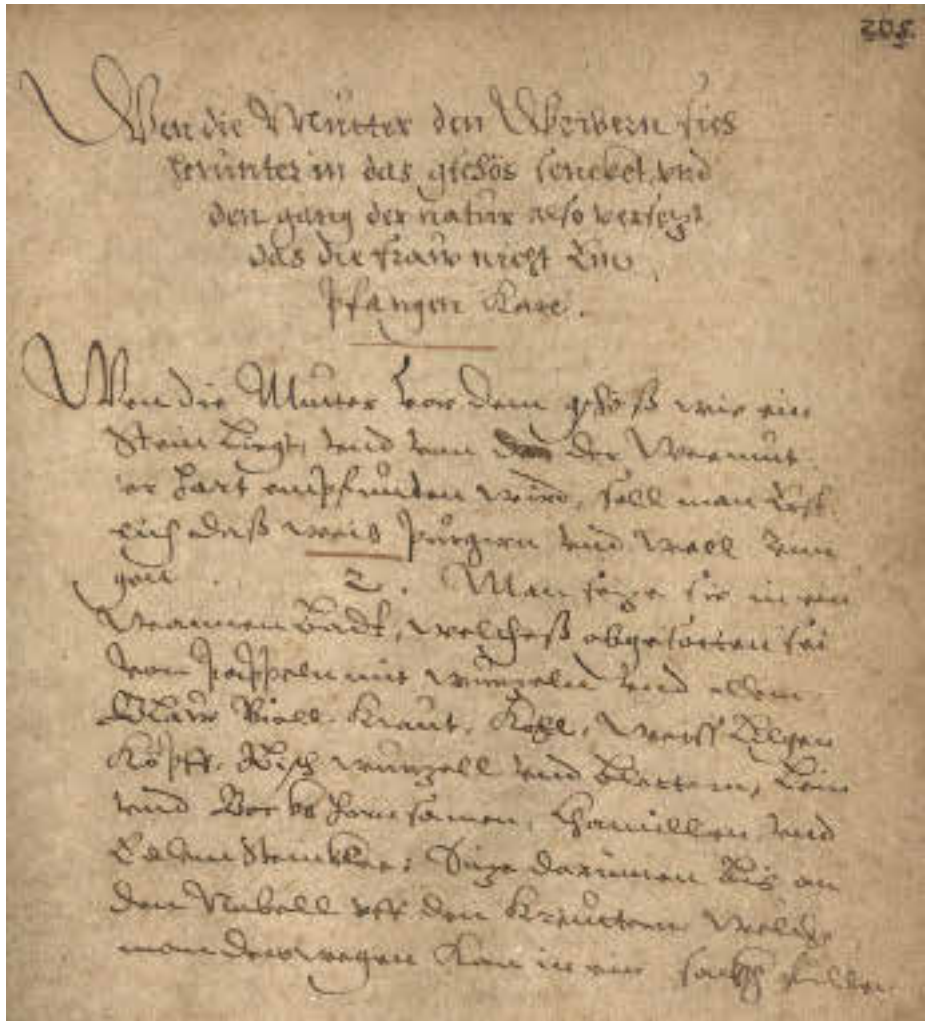 205.
Wen die Mutter den Weibern sich
herunter in das gichös sencket, vnd
den gang der natur also versezt
das die fraw nicht Em
pfangen Kan.
Wen die Mutter vor dem geschoß wie ein
Stein Liegt, vnd von der Wermut
er hart empfunden wird, soll man Erst
lich daß weib purgirn vnd woll
2. Man seze sie in ein
Wannen Badt, welcheß abgesotten sei
von pappeln mit wurzeln vnd allem
Blaw Viell Kraut, Kohl, Weiss Lilgen
Köpff, wurzell vnd Blettern, Lein
vnd Bocks horn samen, Chamillen, vnd
Edlem Steinklee: Size darinnen Bis an
den Nabell vff den Kreuttern Welche
man deswegen Kan in ein füllen